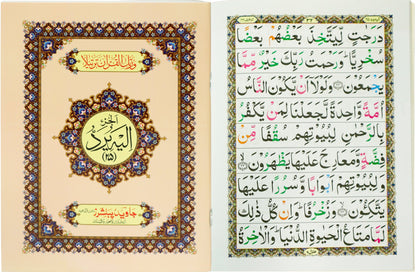 ورتل القرآن ترتيلا
الجزء
اليه يرد
(٢٥)
درجت ليتخذ بعضهم بعضا
سخريا ورحمت ربك خير مما
يجمعون ولولا ان يكون الناس
امة واحدة لجعلنا لمن يكفر
بالرحمن لبيوتهم سقفا من
فضة ومعارج عليها يظهرون
ولبيوتهم ابوابا وسررا عليها
يتكئون وزخرفا وان كل ذلك
لما متاع الحيوة الدنيا والاخرة